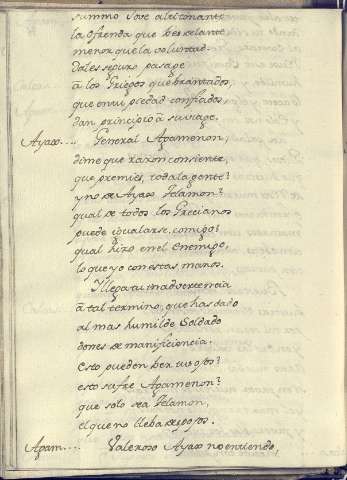 summo Jove altitonante
la ofrenda que ves delante
menor que la voluntad.
Dales seguro pasage
â los Griegos quebrantados,
que en tu piedad confiados
dan principio â su viage.
Ayax.... General Agamenon,
dime que raxon consiente,
que premies, toda la gente?
y no de Ayax Telamon?
qual de todos los Grecianos
puede igualarse, comigo?
qual hizo en el Enemigo,
lo que yo con estas manos.
Y llega tu inadvertencia
â tal termino, que has dado
al mas humilde Soldado
dones de manificiencia.
Esto pueden ber tus ojos?
esto sufre Agamenon?
que solo sea Telamon,
el que no lleba despojos.
Agam.... Valeroso Ayax no entiendo,